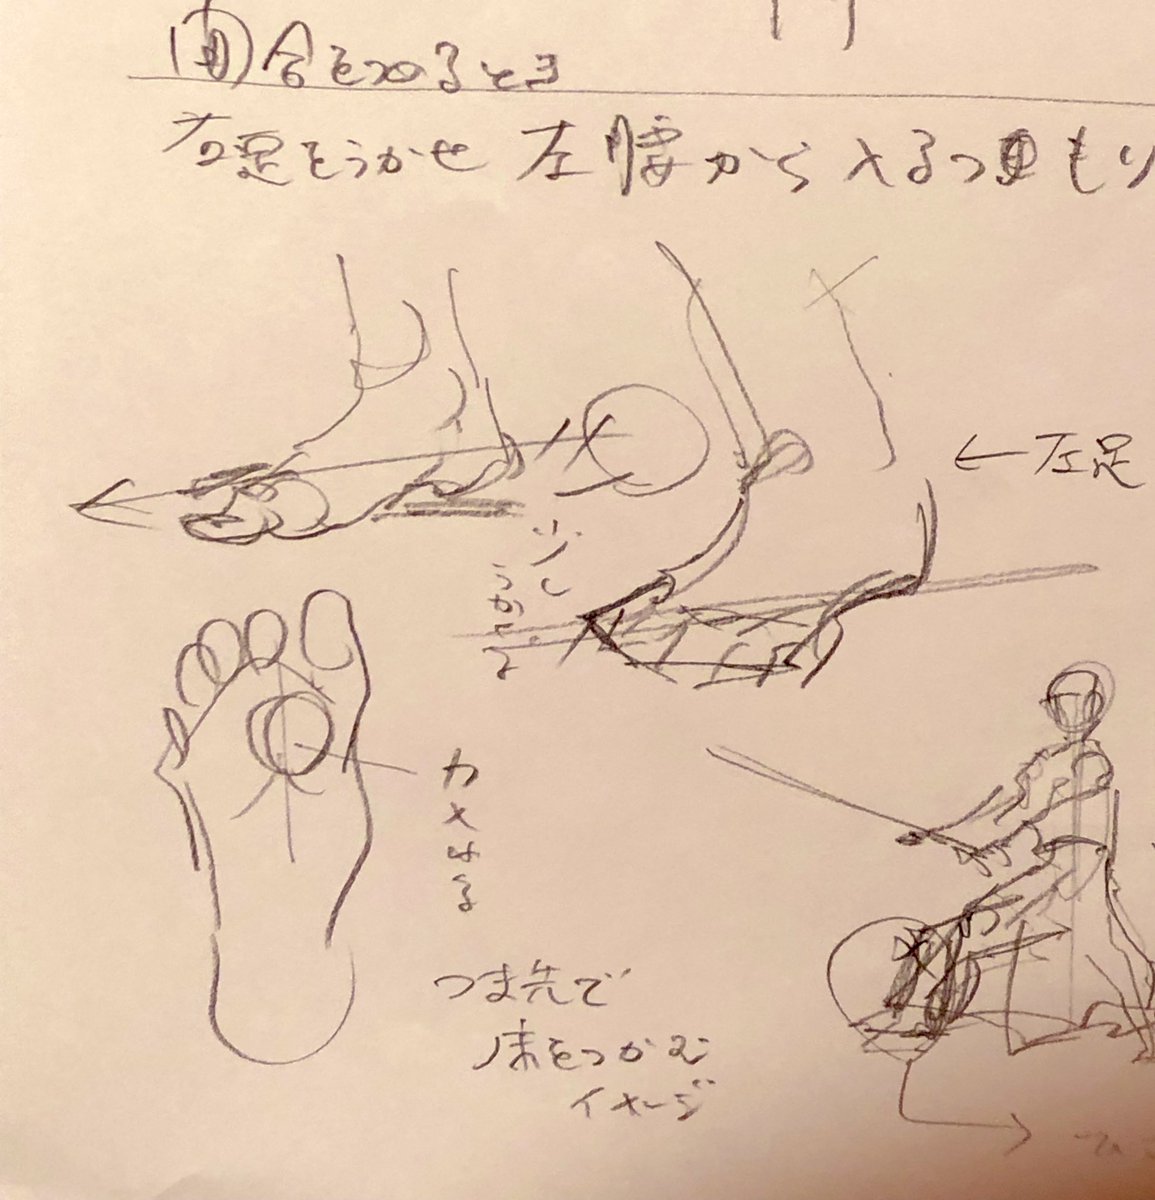 間合をつめるとき
左足をうかせ 左腰から入るつもり
←左足
少し
うかせる
力入れる
つま先で
床をつかむ
イメージ